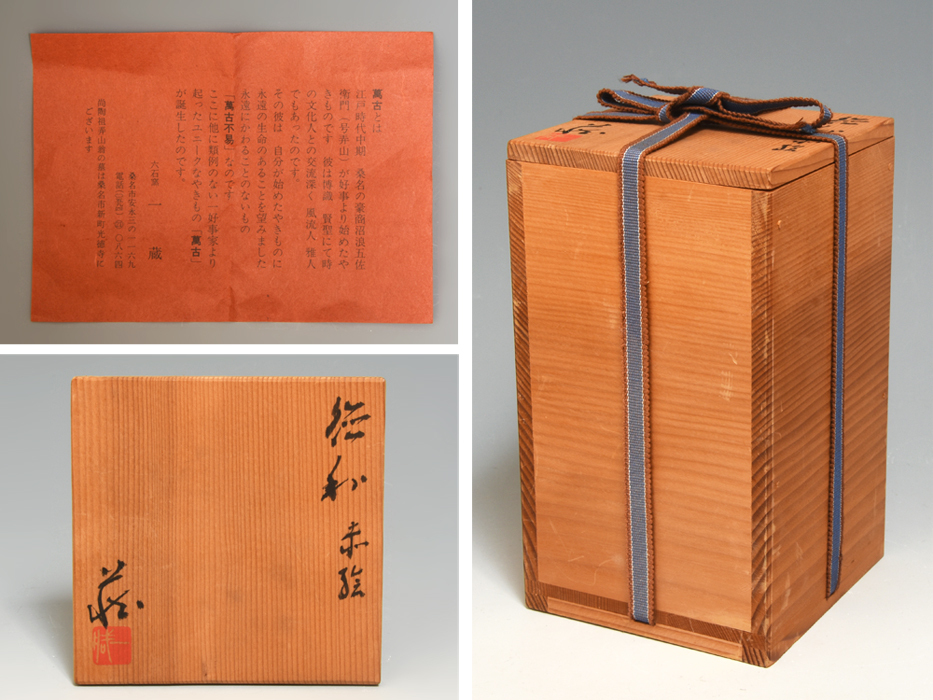 萬古とは
江戸時代中期、桑名の豪商沼浪五佐
衛門（号弄山）が好事より始めたや
きものです。彼は博識、賢聖にて時
の文化人との交流深く、風流人、雅人
でもあったのです。
その彼は、自分が始めたやきものに
永遠の生命のあることを望みました
永遠にかわることのないもの
「萬古不易」なのです。
ここに他に類例のない一好事家より
起ったユニークなやきもの「萬古」
が誕生したのです。
六石窯 一 蔵
桑名市安永
尚陶祖弄山翁の墓は桑名市新町光徳寺に
ございます
徳利 赤絵
一蔵